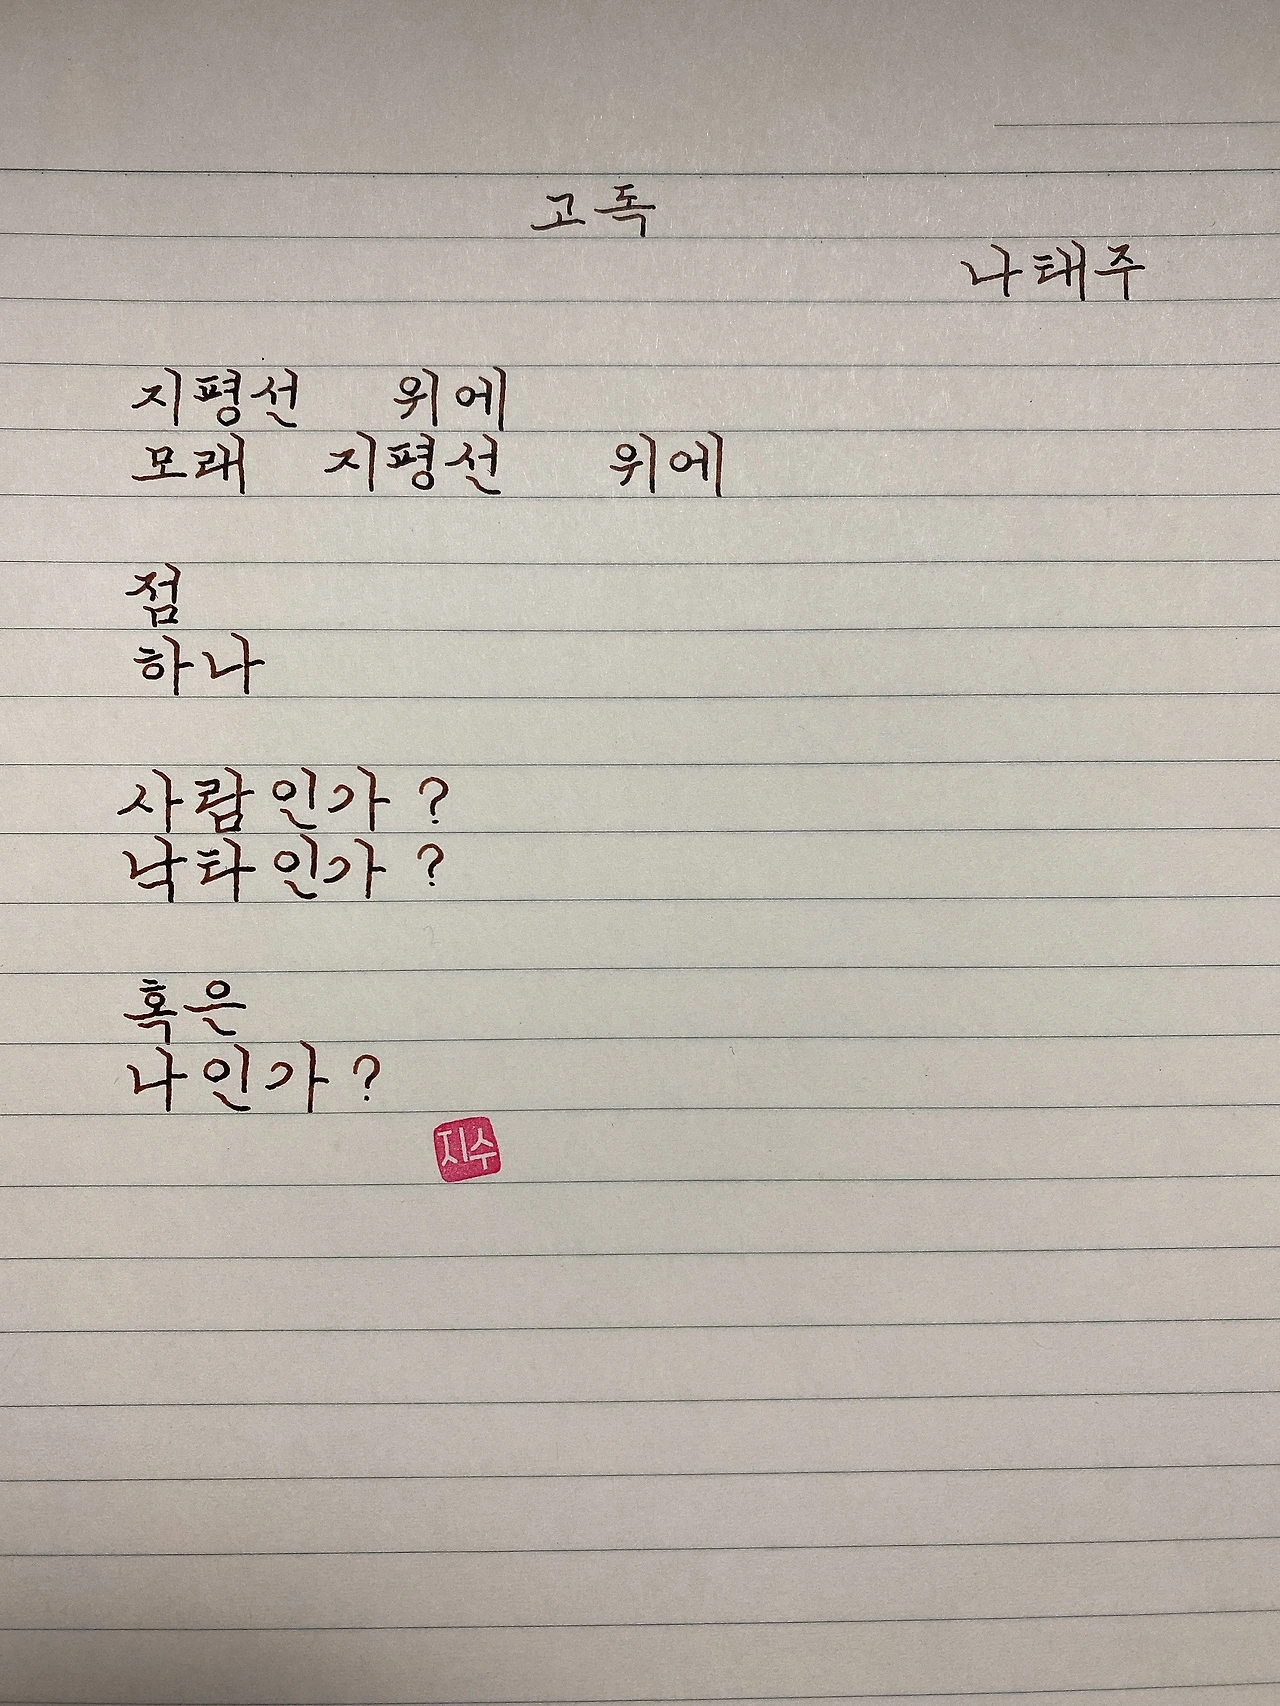 고독
나태주
지평선 위에
모래 지평선 위에
점
하나
사람인가?
낙타인가?
혹은
나인가?
지수